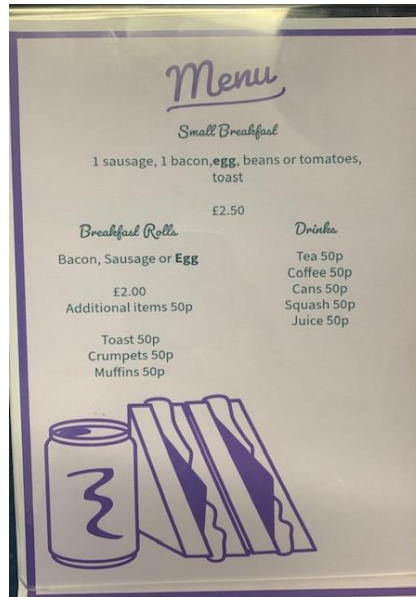 Menu
Small Breakfast
1 sausage, 1 bacon,egg, beans or tomatoes,
toast
£2.50
Breakfast Rolls
Bacon, Sausage or Egg
£2.00
Additional items 50p
Toast 50p
Crumpets 50p
Muffins 50p
Drinks
Tea 50p
Coffee 50p
Cans 50p
Squash 50p
Juice 50p